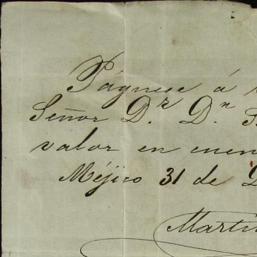 Páguese á
Señor Dr. Dn
valor en cuen
Méjico 31 de
Martin